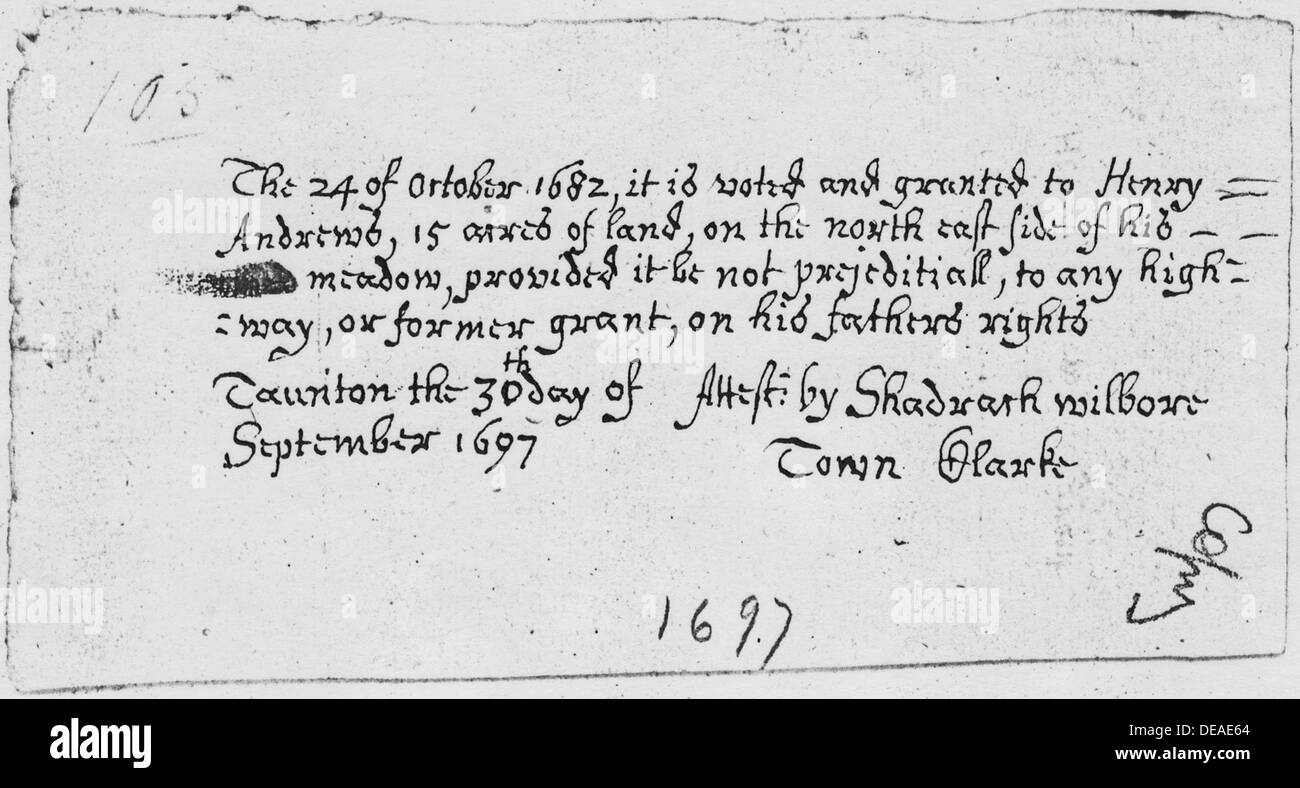 105
The 24 of October 1682, it is voted and granted to Henry =
Andrews, 15 acres of land, on the north east side of his - -
meadow, provided it be not prejeditiall, to any high=
=way, or former grant, on his fathers rights
Taunton the 30th day of Attest: by Shadrack wilbore
September 1697 Town Clarke
Copy
1697
alamy
a
alamy stock photo
Image ID: DEAE64
www.alamy.com